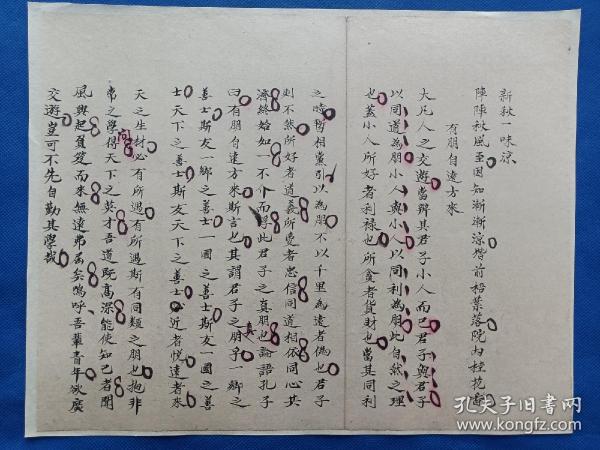 新秋一味凉
陣陣秋風至因知漸漸涼階前梧葉落院內桂花香
有朋自遠方來
大凡人之交遊當辨其君子小人而已君子與君子
以同道為朋小人與小人以同利為朋此自然之理
也蓋小人所好者利祿也所貪者貨財也當其同利
之時暫相黨引以為朋不以千里為遠者偽也君子
則不然所好者道義所愛者忠信同道相依同心共
濟終始如一不介而孚此君子之真朋也論語孔子
曰有朋自遠方來斯言也其謂君子之朋乎一鄉之
善士斯友一鄉之善士一國之善士斯友一國之善
士天下之善士斯友天下之善士近者悅遠者來
天之生材必有所遇有所遇斯有同類之朋也抱非
常之學得天下之英才吾道既高深能使知己者聞
風興起負笈而來無遠弗届矣嗚呼吾輩青年欲廣
交遊豈可不先自勤其學哉
孔夫子旧书网
www.kongfz.com